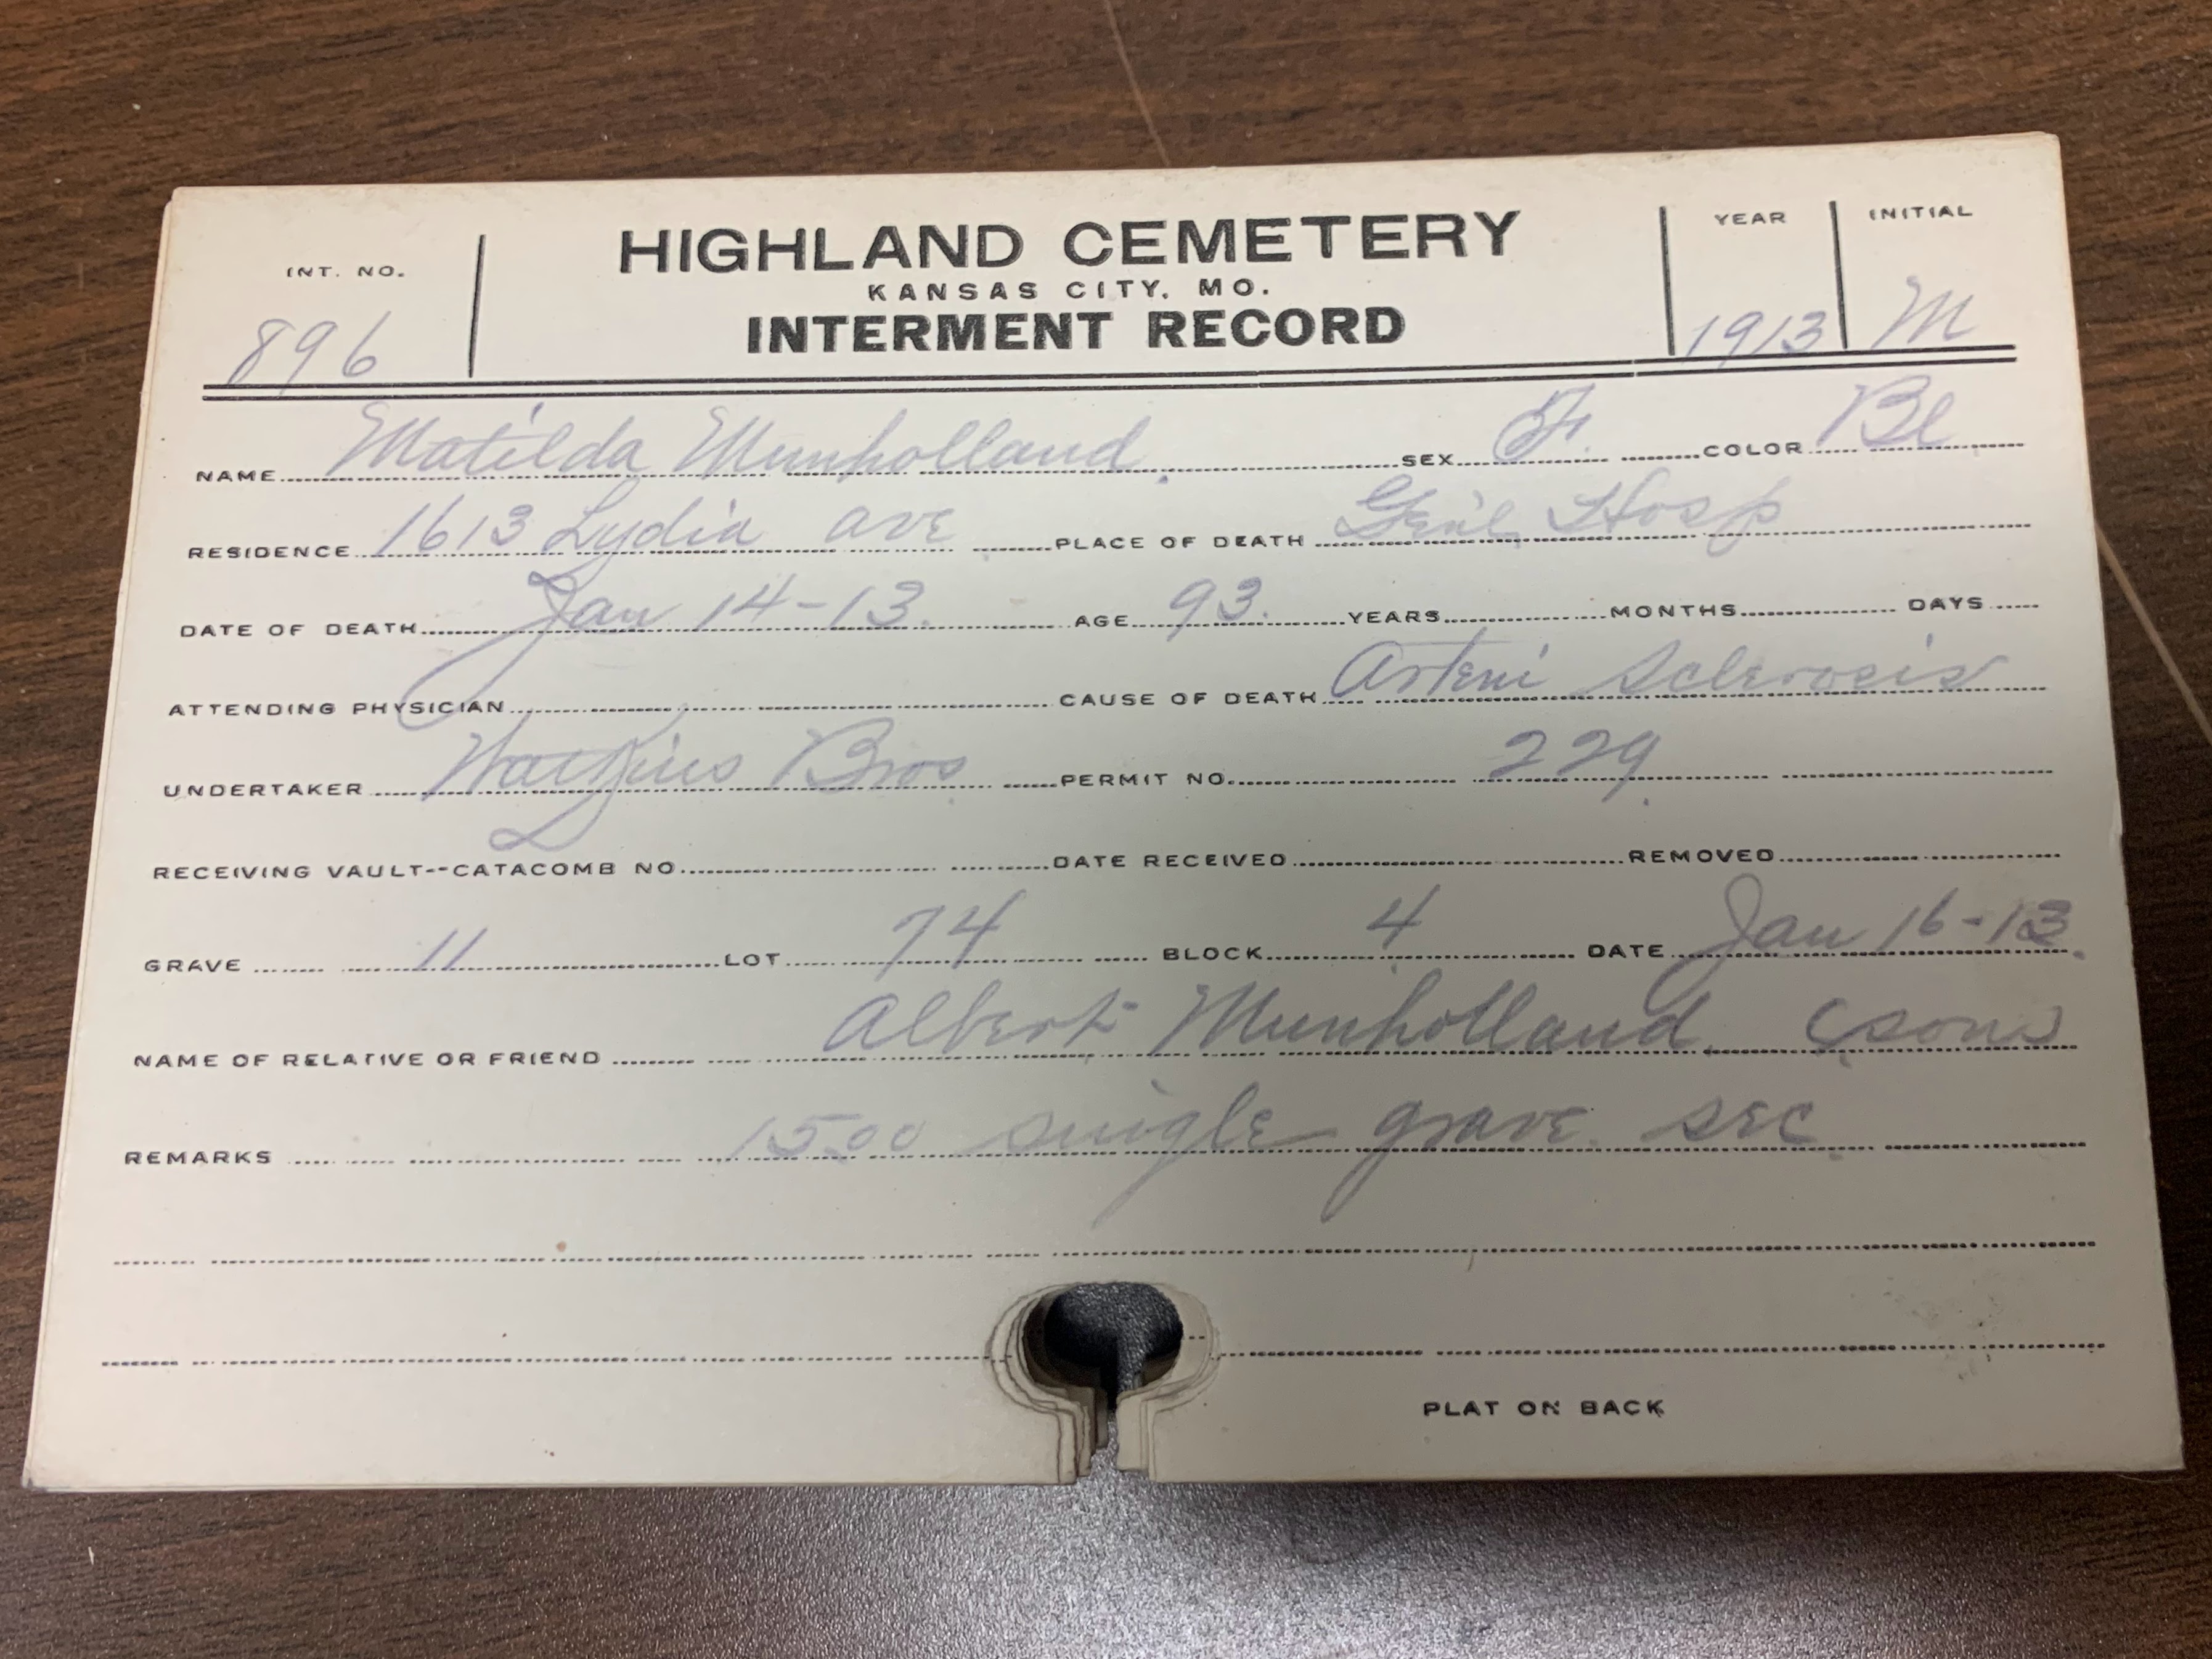 INT. NO. HIGHLAND CEMETERY YEAR INITIAL
KANSAS CITY, MO.
896 INTERMENT RECORD 1913 M
NAME Matilda Munholland SEX F. COLOR Bl
RESIDENCE 1613 Lydia ave PLACE OF DEATH Gen'l Hosp
DATE OF DEATH Jan 14-13. AGE 93. YEARS MONTHS DAYS
ATTENDING PHYSICIAN CAUSE OF DEATH Arteri Sclerosis
UNDERTAKER Watkins Bros PERMIT NO. 229
RECEIVING VAULT--CATACOMB NO. DATE RECEIVED REMOVED
GRAVE 11 LOT 74 BLOCK 4 DATE Jan 16-13.
NAME OF RELATIVE OR FRIEND Albert Munholland (son)
REMARKS 15.00 single grave sec
PLAT ON BACK